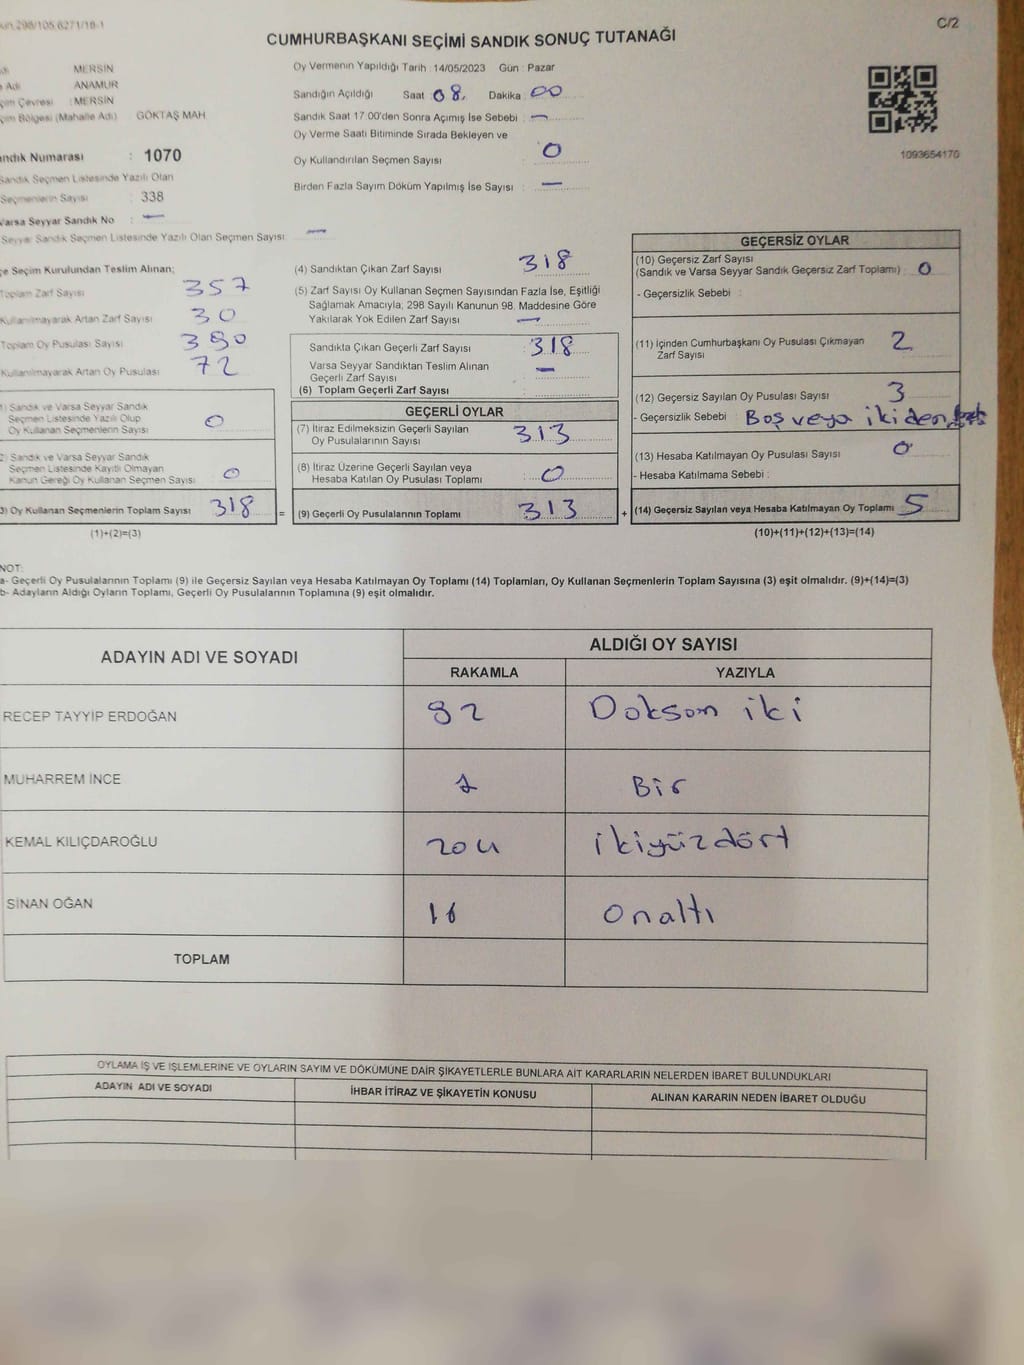 298/105.6271/18-1
C/2
CUMHURBAŞKANI SEÇİMİ SANDIK SONUÇ TUTANAĞI
MERSİN
Adı ANAMUR
Çevresi : MERSİN
Bölgesi (Mahalle Adı) GÖKTAŞ MAH
Numarası : 1070
Sandık Seçmen Listesinde Yazılı Olan
Seçmenlerin Sayısı : 338
Varsa Seyyar Sandık No : —
Seyyar Sandık Seçmen Listesinde Yazılı Olan Seçmen Sayısı : —
Oy Vermenin Yapıldığı Tarih : 14/05/2023 Gün : Pazar
Sandığın Açıldığı Saat 08. Dakika 00
Sandık Saat 17.00'den Sonra Açımış İse Sebebi : —
Oy Verme Saati Bitiminde Sırada Bekleyen ve
Oy Kullandırılan Seçmen Sayısı : 0
Birden Fazla Sayım Döküm Yapılmış İse Sayısı : —
1093654170
Seçim Kurulundan Teslim Alınan;
Toplam Zarf Sayısı 357
Kullanılmayarak Artan Zarf Sayısı 30
Toplam Oy Pusulası Sayısı 380
Kullanılmayarak Artan Oy Pusulası 72
1) Sandık ve Varsa Seyyar Sandık
Seçmen Listesinde Yazılı Olup
Oy Kullanan Seçmenlerin Sayısı 0
2) Sandık ve Varsa Seyyar Sandık
Seçmen Listesinde Kayıtlı Olmayan
Kanun Gereği Oy Kullanan Seçmen Sayısı 0
3) Oy Kullanan Seçmenlerin Toplam Sayısı 318 =
(1)+(2)=(3)
(4) Sandıktan Çıkan Zarf Sayısı 318
(5) Zarf Sayısı Oy Kullanan Seçmen Sayısından Fazla İse, Eşitliği
Sağlamak Amacıyla; 298 Sayılı Kanunun 98. Maddesine Göre
Yakılarak Yok Edilen Zarf Sayısı —
Sandıkta Çıkan Geçerli Zarf Sayısı : 318
Varsa Seyyar Sandıktan Teslim Alınan
Geçerli Zarf Sayısı : —
(6) Toplam Geçerli Zarf Sayısı :
GEÇERLİ OYLAR
(7) İtiraz Edilmeksizin Geçerli Sayılan
Oy Pusulalarının Sayısı : 313
(8) İtiraz Üzerine Geçerli Sayılan veya
Hesaba Katılan Oy Pusulası Toplamı : 0
(9) Geçerli Oy Pusulalarının Toplamı : 313 +
GEÇERSİZ OYLAR
(10) Geçersiz Zarf Sayısı
(Sandık ve Varsa Seyyar Sandık Geçersiz Zarf Toplamı) : 0
- Geçersizlik Sebebi :
(11) İçinden Cumhurbaşkanı Oy Pusulası Çıkmayan
Zarf Sayısı : 2
(12) Geçersiz Sayılan Oy Pusulası Sayısı 3
- Geçersizlik Sebebi Boş veya ikiden
(13) Hesaba Katılmayan Oy Pusulası Sayısı : 0
- Hesaba Katılmama Sebebi :
(14) Geçersiz Sayılan veya Hesaba Katılmayan Oy Toplamı 5
(10)+(11)+(12)+(13)=(14)
NOT:
a- Geçerli Oy Pusulalarının Toplamı (9) ile Geçersiz Sayılan veya Hesaba Katılmayan Oy Toplamı (14) Toplamları, Oy Kullanan Seçmenlerin Toplam Sayısına (3) eşit olmalıdır. (9)+(14)=(3)
b- Adayların Aldığı Oyların Toplamı, Geçerli Oy Pusulalarının Toplamına (9) eşit olmalıdır.
ADAYIN ADI VE SOYADI
ALDIĞI OY SAYISI
RAKAMLA YAZIYLA
RECEP TAYYİP ERDOĞAN 92 Doksan iki
MUHARREM İNCE 1 Bir
KEMAL KILIÇDAROĞLU 204 ikiyüzdört
SİNAN OĞAN 16 onaltı
TOPLAM
OYLAMA İŞ VE İŞLEMLERİNE VE OYLARIN SAYIM VE DÖKÜMÜNE DAİR ŞİKAYETLERLE BUNLARA AİT KARARLARIN NELERDEN İBARET BULUNDUKLARI
ADAYIN ADI VE SOYADI İHBAR İTİRAZ VE ŞİKAYETİN KONUSU ALINAN KARARIN NEDEN İBARET OLDUĞU